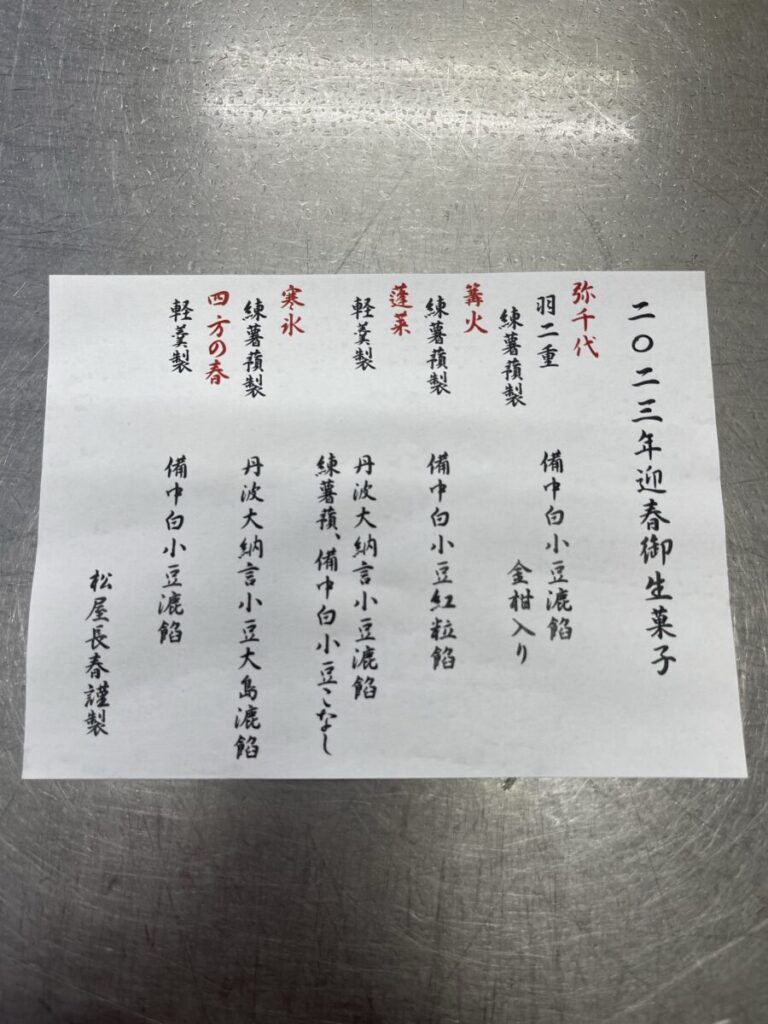 二〇二三年迎春御生菓子
弥千代
羽二重 備中白小豆漉餡
練薯蕷製 金柑入り
篝火
練薯蕷製 備中白小豆紅粒餡
蓬莱
軽羹製 丹波大納言小豆漉餡
練薯蕷、備中白小豆こなし
寒氷
練薯蕷製 丹波大納言小豆大島漉餡
四方の春
軽羹製 備中白小豆漉餡
松屋長春謹製